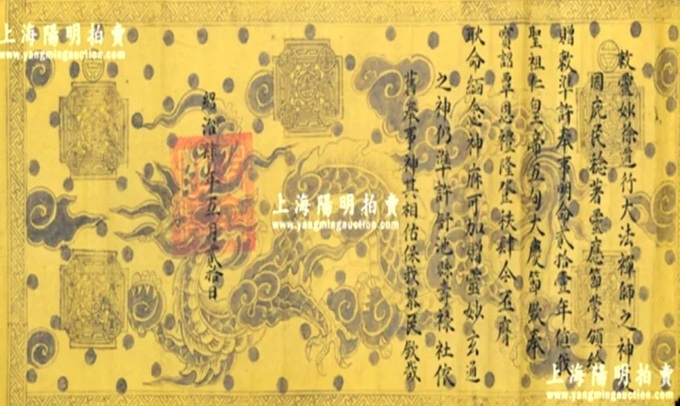 上海陽明拍賣
www.yangmingauction.com
敕靈妙徐道行大法禪師之神護
國庇民稔著靈應節蒙頒給
贈敕準許奉事明命貳拾壹年値我
聖祖仁皇帝五旬大慶節欽奉
寶詔覃恩禮隆登秩肆今丕膺
耿命緬念神庥可加贈靈妙玄通
之神仍準許舒池縣壽祿社依
舊奉事神其相佑保我黎民欽哉
紹治肆年五月貳拾日
上海陽明拍賣
www.yangmingauction.com
上海陽明拍賣
www.yangmingauction.com